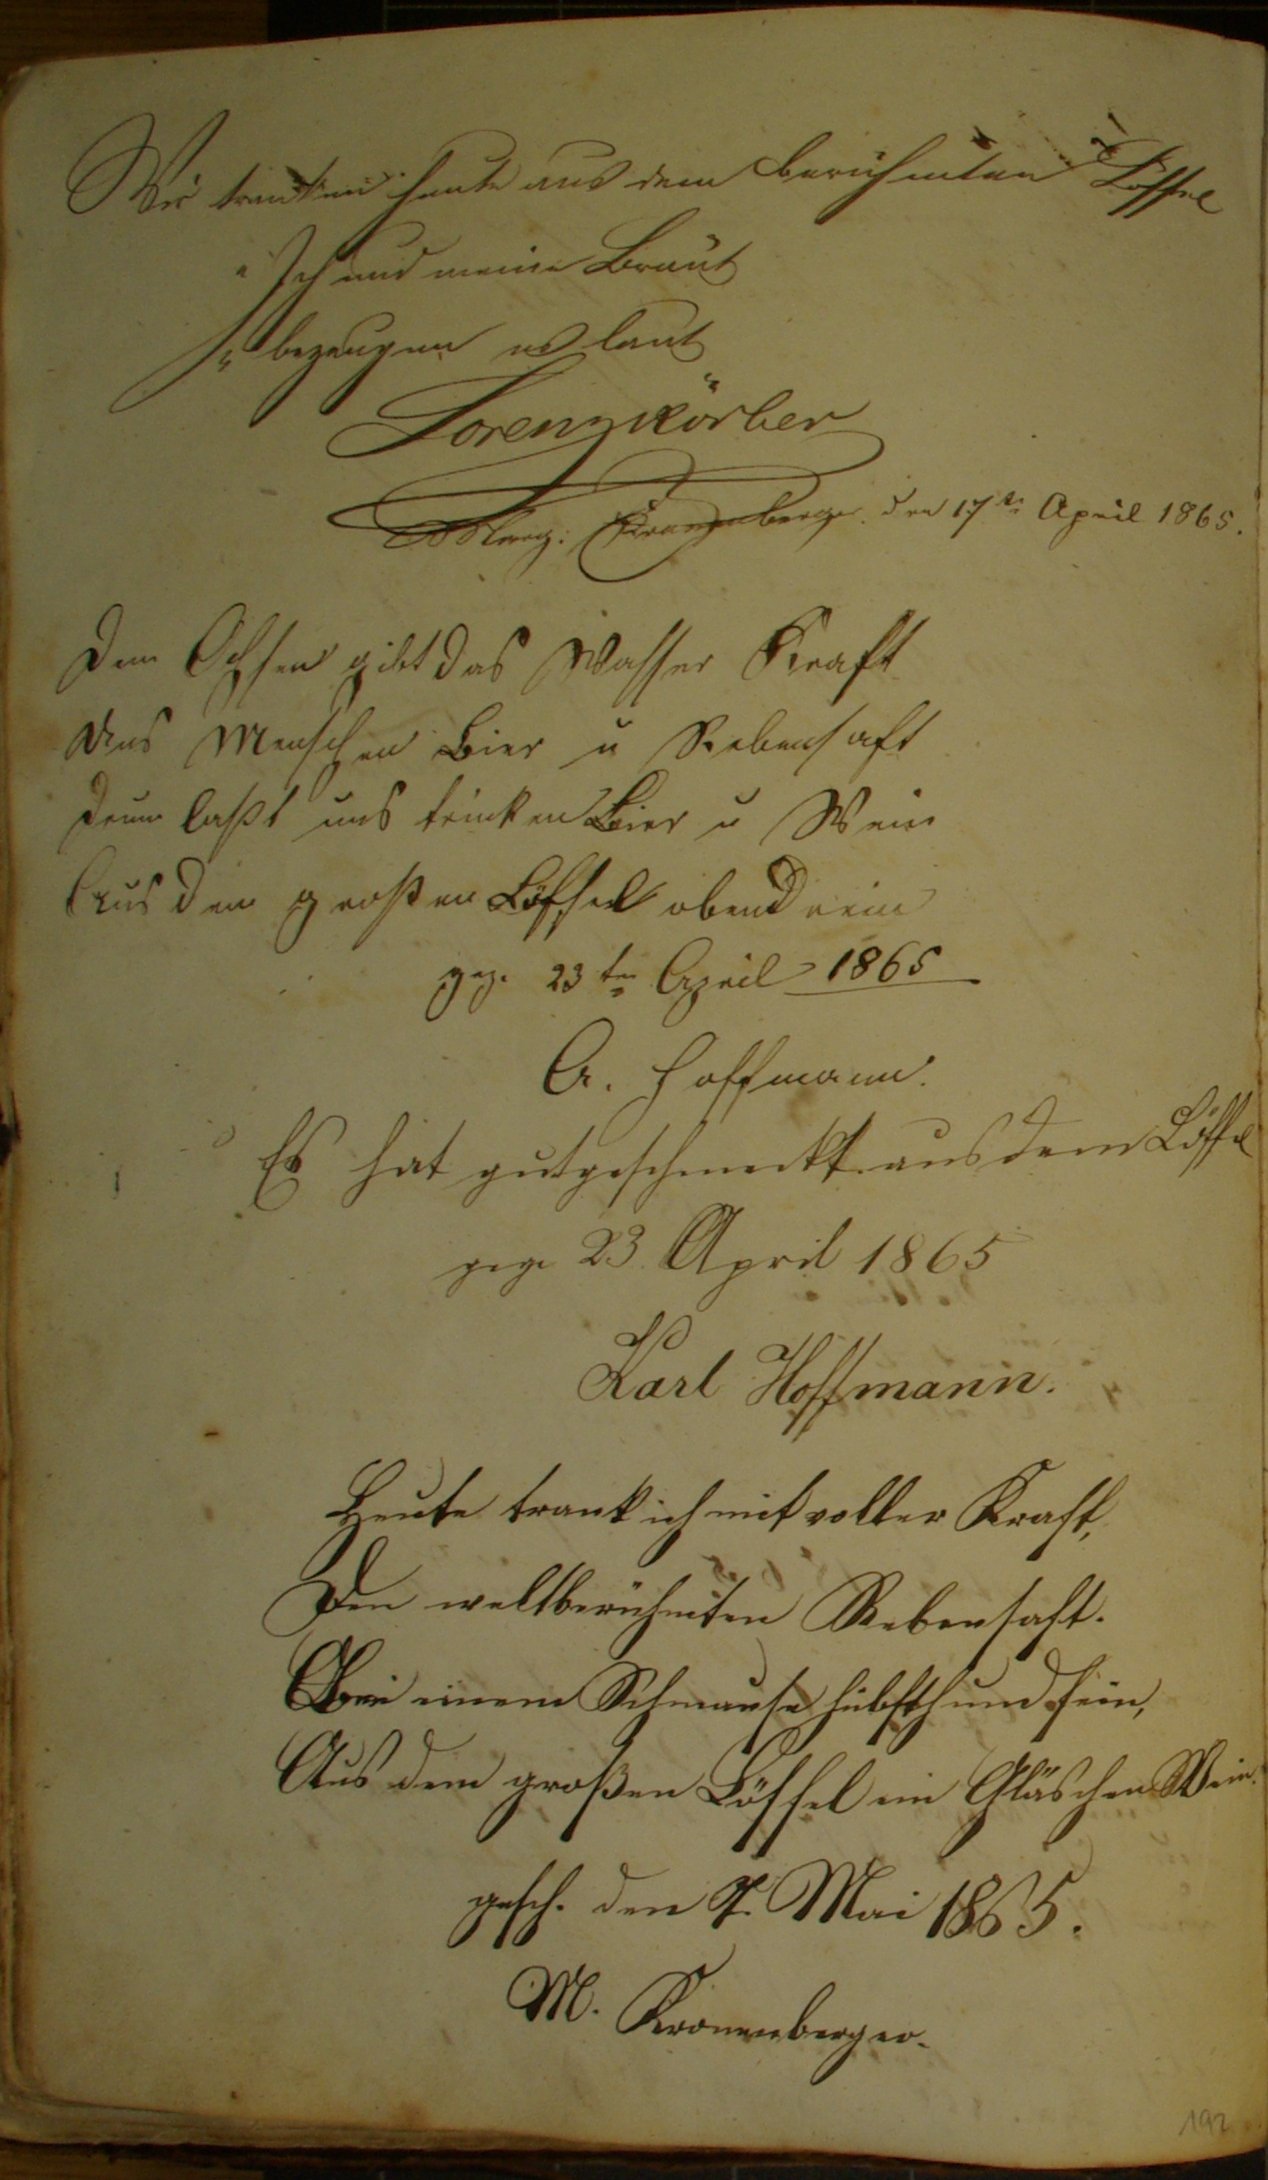 Wir tranken heute aus dem berühmten Löffel
"Ich und meine Braut
"bezeugen es laut
Lorenz Körber
Marg: den 17te April 1865.
Dem Ochsen gibt das Wasser Kraft
Uns Menschen Bier u Rebensaft
Drum laßt uns trinken Bier u Wein
Aus dem großen Löffel obendrein
gez. 23ten April 1865
A. Hoffmann.
Es hat gut geschmeckt aus dem Löffel
gez 23 April 1865
Karl Hoffmann.
Heute trank ich mit voller Kraft,
Den weltberühmten Rebensaft.
Bei einem Schmause hübsch und fein,
Aus dem großen Löffel ein Gläschen Wein.
gesch. den 7. Mai 1865.
M. Kronenberger.
192